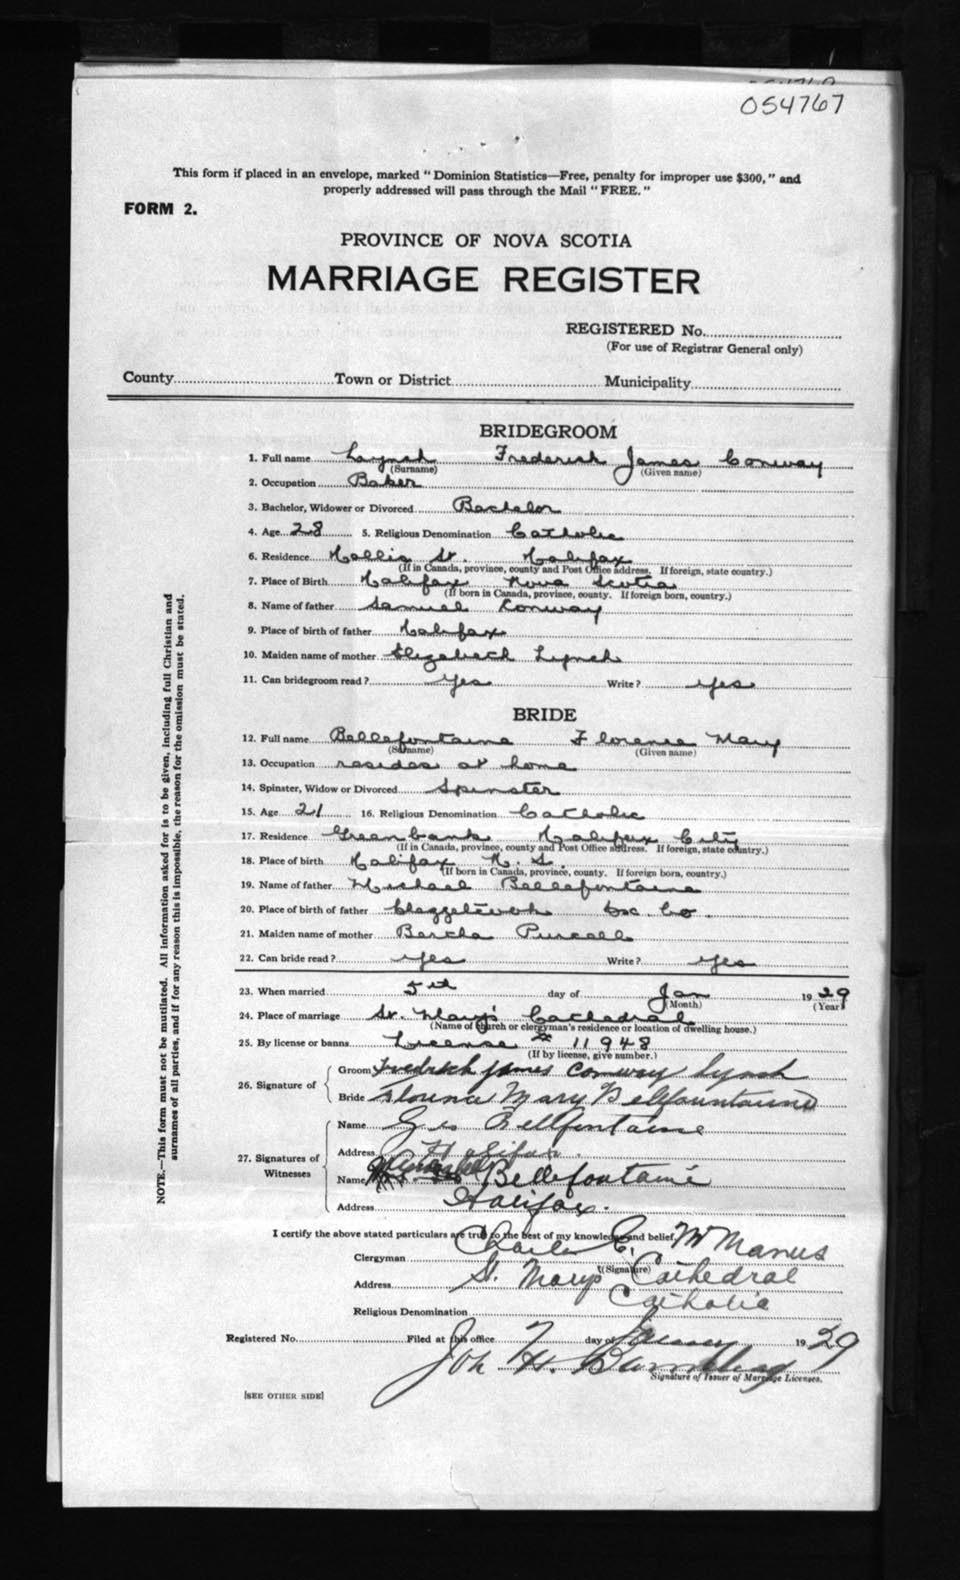 054767
This form if placed in an envelope, marked "Dominion Statistics—Free, penalty for improper use $300," and
properly addressed will pass through the Mail "FREE."
FORM 2.
PROVINCE OF NOVA SCOTIA
MARRIAGE REGISTER
REGISTERED No.
(For use of Registrar General only)
County Town or District Municipality
BRIDEGROOM
1. Full name Lynch Frederick James Conway
(Surname) (Given name)
2. Occupation Baker
3. Bachelor, Widower or Divorced Bachelor
4. Age 28 5. Religious Denomination Catholic
6. Residence Hollis St. Halifax
(If in Canada, province, county and Post Office address. If foreign, state country.)
7. Place of Birth Halifax Nova Scotia
(If born in Canada, province, county. If foreign born, country.)
8. Name of father Samuel Conway
9. Place of birth of father Halifax
10. Maiden name of mother Elizabeth Lynch
11. Can bridegroom read? Yes Write? Yes
BRIDE
12. Full name Bellefontaine Florence Mary
(Surname) (Given name)
13. Occupation resides at home
14. Spinster, Widow or Divorced Spinster
15. Age 21 16. Religious Denomination Catholic
17. Residence Greenbank Halifax City
(If in Canada, province, county and Post Office address. If foreign, state country.)
18. Place of birth Halifax N. S.
(If born in Canada, province, county. If foreign born, country.)
19. Name of father Michael Bellefontaine
20. Place of birth of father Co.
21. Maiden name of mother Bertha Purcell
22. Can bride read? Yes Write? Yes
23. When married 5th day of Jan 1929
(Month) (Year)
24. Place of marriage St. Mary's Cathedral
(Name of church or clergyman's residence or location of dwelling house.)
25. By license or banns License # 11948
(If by license, give number.)
26. Signature of
Groom Fredrick James Conway Lynch
Bride Florence Mary Bellfountaine
27. Signatures of Witnesses
Name Bellfontaine
Address Halifax.
Name Bellefontaine
Address Halifax.
I certify the above stated particulars are true to the best of my knowledge and belief.
Clergyman Charles C. McManus
(Signature)
Address St. Mary's Cathedral
Religious Denomination Catholic
Registered No. Filed at this office 7 day of January 1929
Joh H.
Signature of Issuer of Marriage Licenses.
[SEE OTHER SIDE]
NOTE.—This form must not be mutilated. All information asked for is to be given, including full Christian and
surnames of all parties, and if for any reason this is impossible, the reason for the omission must be stated.